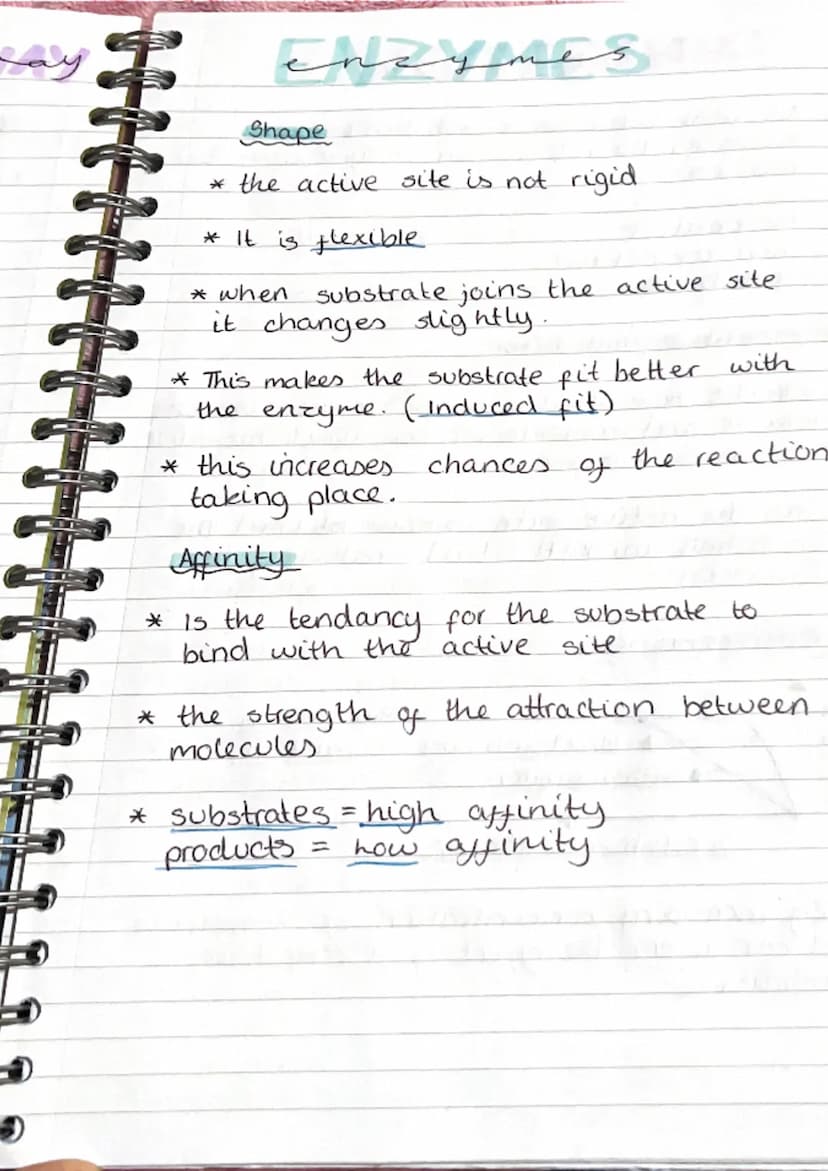 ay
ENZYMES
enzymes
Shape
* the active site is not rigid
* It is flexible
* when substrate joins the active site
it changes slightly.
* This makes the substrate fit better with
the enzyme. (induced fit)
* this increases chances of the reaction
taking place.
Affinity
* is the tendancy for the substrate to
bind with the active site
* the strength of the attraction between
molecules
* substrates = high affinity
products = how affinity